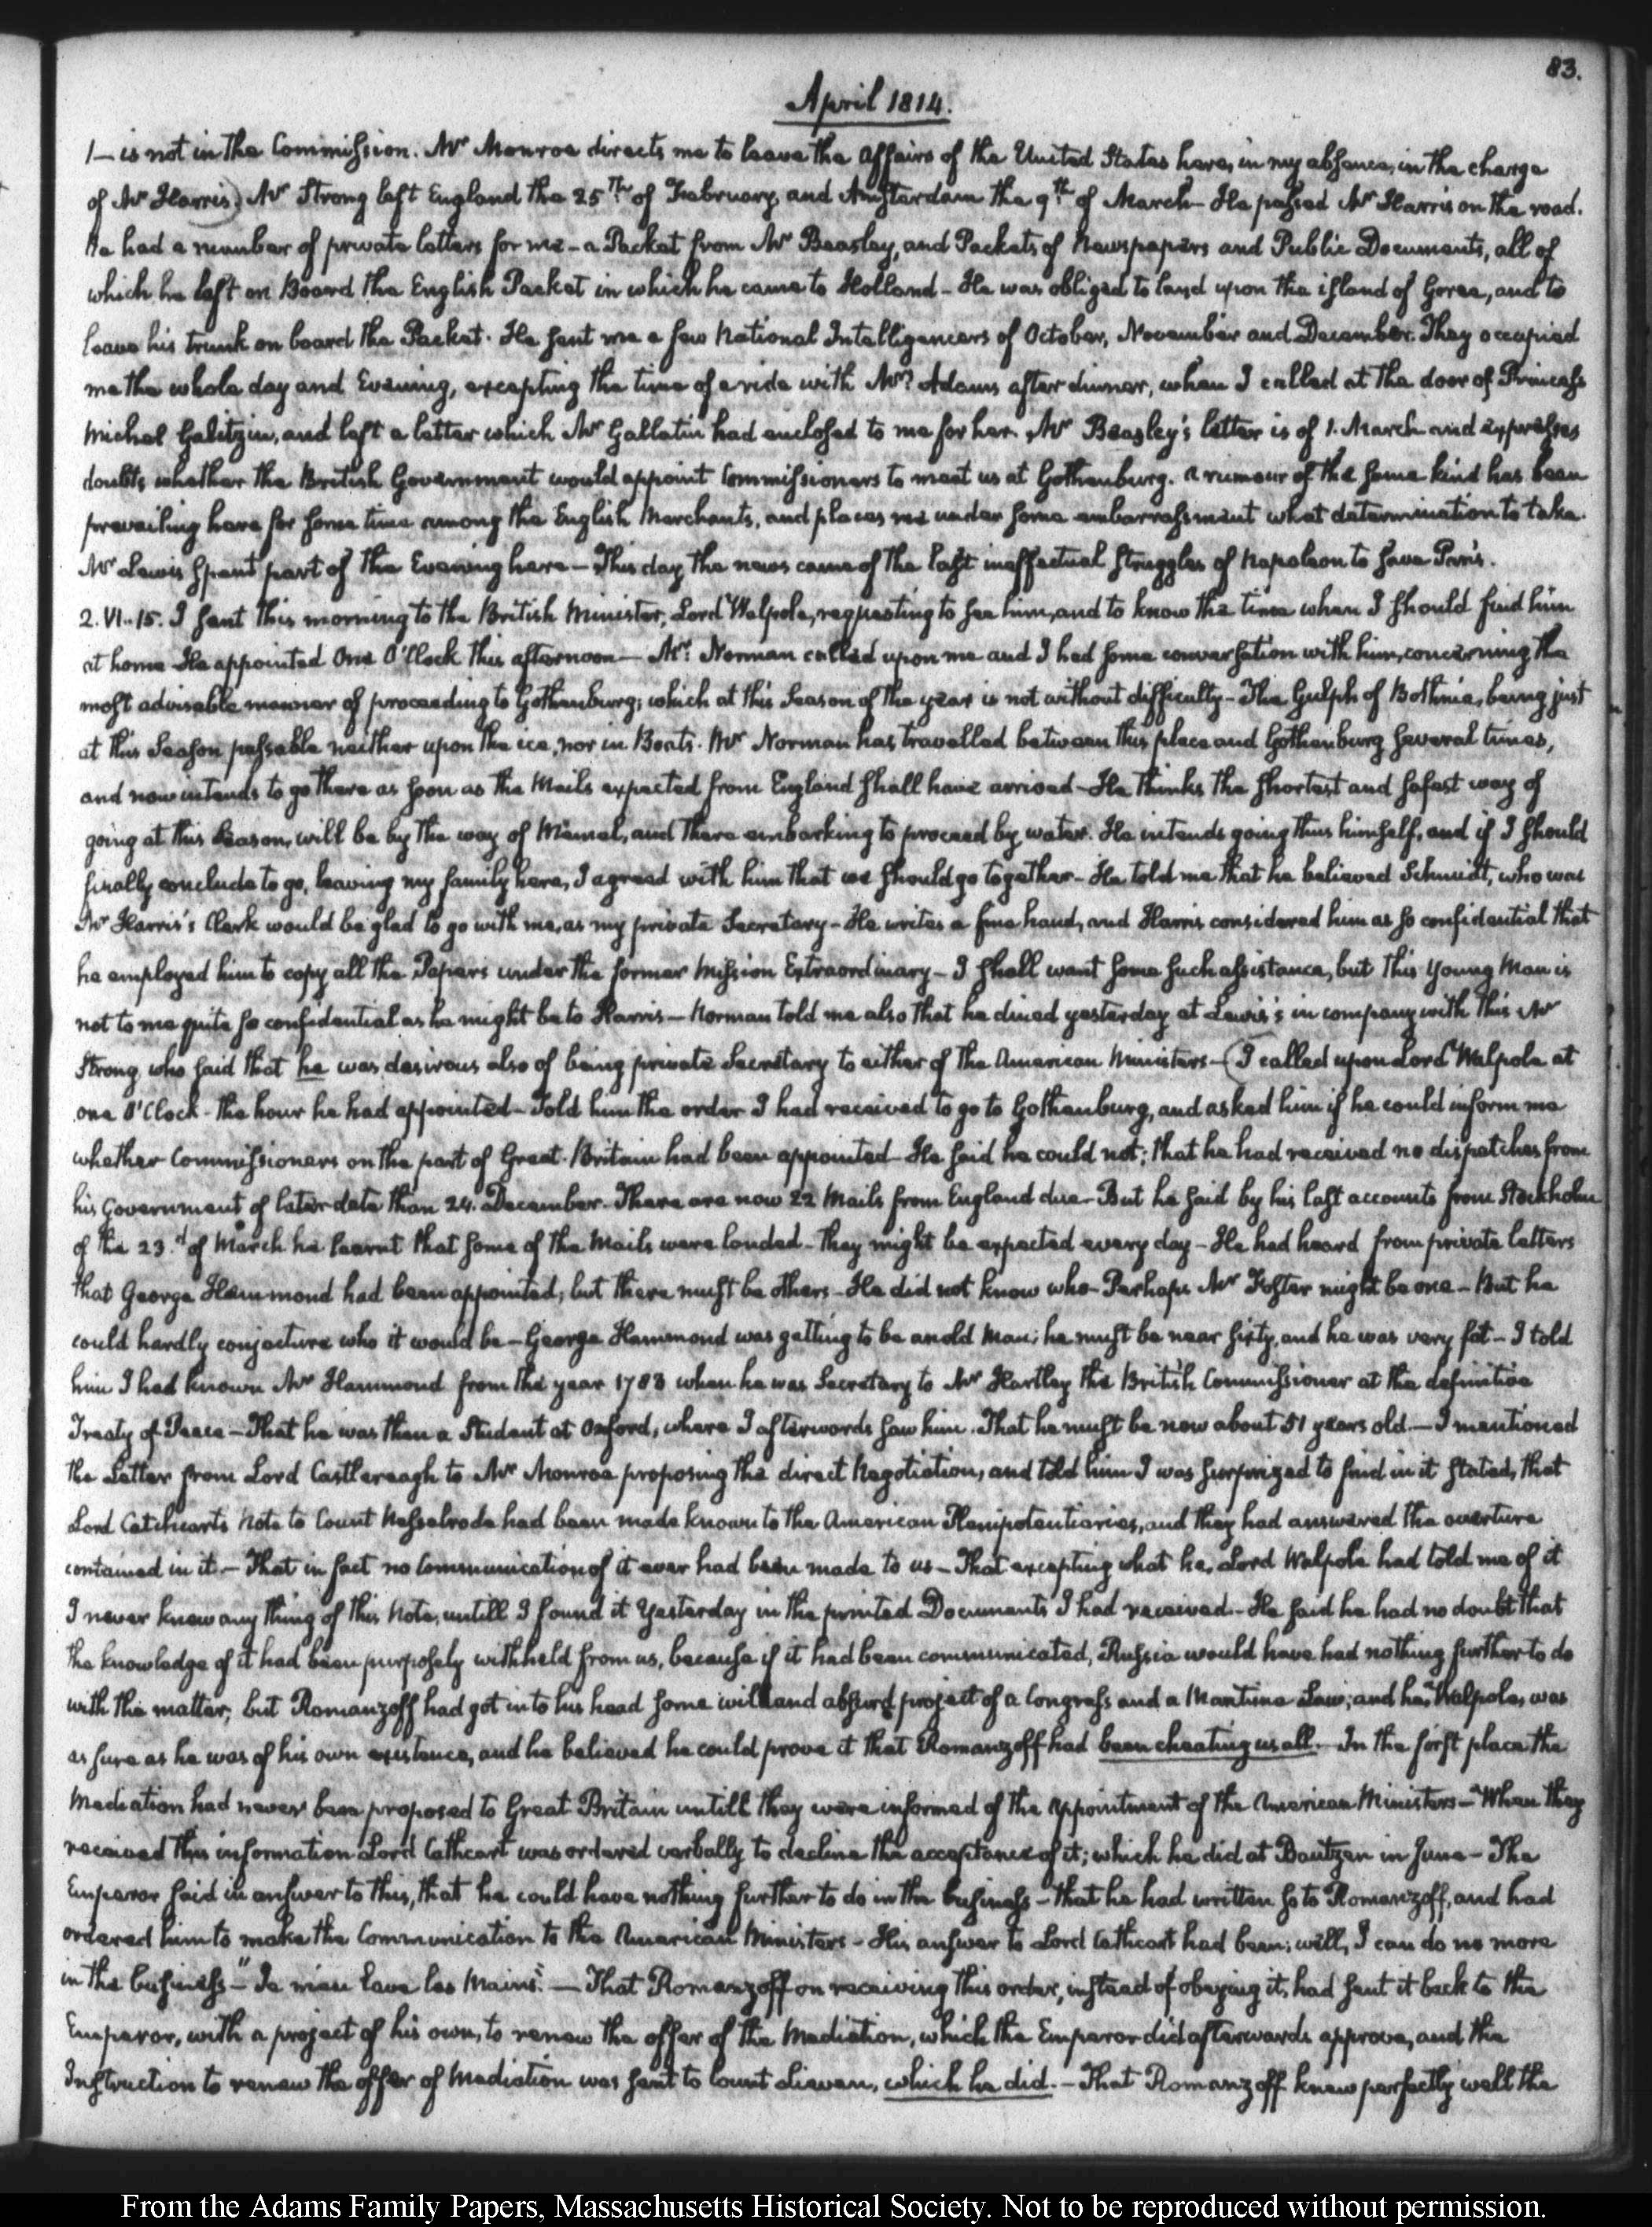 83.
April 1814.
1— is not in the Commission. Mr Monroe directs me to leave the affairs of the United States here, in my absence, in the charge
of Mr Harris) Mr Strong left England the 25th of February, and Amsterdam the 9th of March— He passed Mr Harris on the road.
He had a number of private letters for me — a Packet from Mr Beasley, and Packets of Newspapers and Public Documents, all of
which he left on Board the English Packet in which he came to Holland — He was obliged to land upon the island of Goree, and to
leave his trunk on board the Packet. He sent me a few National Intelligencers of October, November and December. They occupied
me the whole day and Evening, excepting the time of a ride with Mrs Adams after dinner, when I called at the door of Princess
Michel Galitzin, and left a letter which Mr Gallatin had enclosed to me for her. Mr Beasley's letter is of 1. March and expresses
doubts whether the British Government would appoint Commissioners to meet us at Gothenburg. A rumour of the same kind has been
prevailing here for some time among the English Merchants, and places me under some embarrassment what determination to take.
Mr Lewis spent part of the Evening here — This day the news came of the last ineffectual struggles of Napoleon to save Paris.
2. VI..15. I sent this morning to the British Minister, Lord Walpole, requesting to see him, and to know the time when I should find him
at home— He appointed One O'Clock this afternoon — Mr: Norman called upon me and I had some conversation with him, concerning the
most advisable manner of proceeding to Gothenburg; which at this Season of the year is not without difficulty — The Gulph of Bothnia, being just
at this Season passable neither upon the ice, nor in Boats. Mr Norman has travelled between this place and Gothenburg several times,
and now intends to go there as soon as the Mails expected from England shall have arrived — He thinks the shortest and safest way of
going at this Season, will be by the way of Memel, and there embarking to proceed by water. He intends going thus himself, and if I should
finally conclude to go, leaving my family here, I agreed with him that we should go together — He told me that he believed Schmidt, who was
Mr Harris's Clerk would be glad to go with me, as my private Secretary — He writes a fine hand, and Harris considered him as so confidential that
he employed him to copy all the Papers under the former Mission Extraordinary — I shall want some such assistance, but this young Man is
not to me quite so confidential as he might be to Harris — Norman told me also that he dined yesterday at Lewis's in company with this Mr
Strong, who said that he was desirous also of being private Secretary to either of the American Ministers — (I called upon Lord Walpole at
one O'Clock - the hour he had appointed — Told him the order I had received to go to Gothenburg, and asked him if he could inform me
whether Commissioners on the part of Great-Britain had been appointed — He said he could not; that he had received no dispatches from
his Government of later date than 24. December — There are now 22 Mails from England due — But he said by his last accounts from Stockholm
of the 23.d of March he learnt that some of the Mails were landed — they might be expected every day — He had heard from private letters
that George Hammond had been appointed; but there must be others — He did not know who — Perhaps Mr Foster might be one — But he
could hardly conjecture who it would be — George Hammond was getting to be an old Man; he must be near sixty, and he was very fat — I told
him I had known Mr Hammond from the year 1783 when he was Secretary to Mr Hartley the British Commissioner at the definitive
Treaty of Peace — That he was then a Student at Oxford, where I afterwards saw him. That he must be now about 51 years old. — I mentioned
the Letter from Lord Castlereagh to Mr Monroe proposing the direct Negotiation, and told him I was surprized to find in it stated, that
Lord Cathcarts Note to Count Nesselrode had been made known to the American Plenipotentiaries, and they had answered the overture
contained in it. — That in fact no Communication of it ever had been made to us — That excepting what he, Lord Walpole had told me of it
I never knew any thing of this Note, untill I found it Yesterday in the printed Documents I had received — He said he had no doubt that
the knowledge of it had been purposely withheld from us, because if it had been communicated, Russia would have had nothing further to do
with the matter; but Romanzoff had got into his head some wild and absurd project of a Congress and a Maritime Law; and he, Walpole, was
as sure as he was of his own existence, and he believed he could prove it that Romanzoff had been cheating us all. — In the first place the
Mediation had never been proposed to Great Britain untill they were informed of the appointment of the American Ministers — When they
received this information Lord Cathcart was ordered verbally to decline the acceptance of it; which he did at Bautzen in June — The
Emperor said in answer to this, that he could have nothing further to do in the business — that he had written so to Romanzoff, and had
ordered him to make the Communication to the American Ministers — His answer to Lord Cathcart had been; well, I can do no more
in the business — "Je m'en lave les Mains". — That Romanzoff on receiving this order, instead of obeying it, had sent it back to the
Emperor, with a project of his own, to renew the offer of the Mediation, which the Emperor did afterwards approve, and the
Instruction to renew the offer of Mediation was sent to Count Lieven, which he did. — That Romanzoff knew perfectly well the
From the Adams Family Papers, Massachusetts Historical Society. Not to be reproduced without permission.